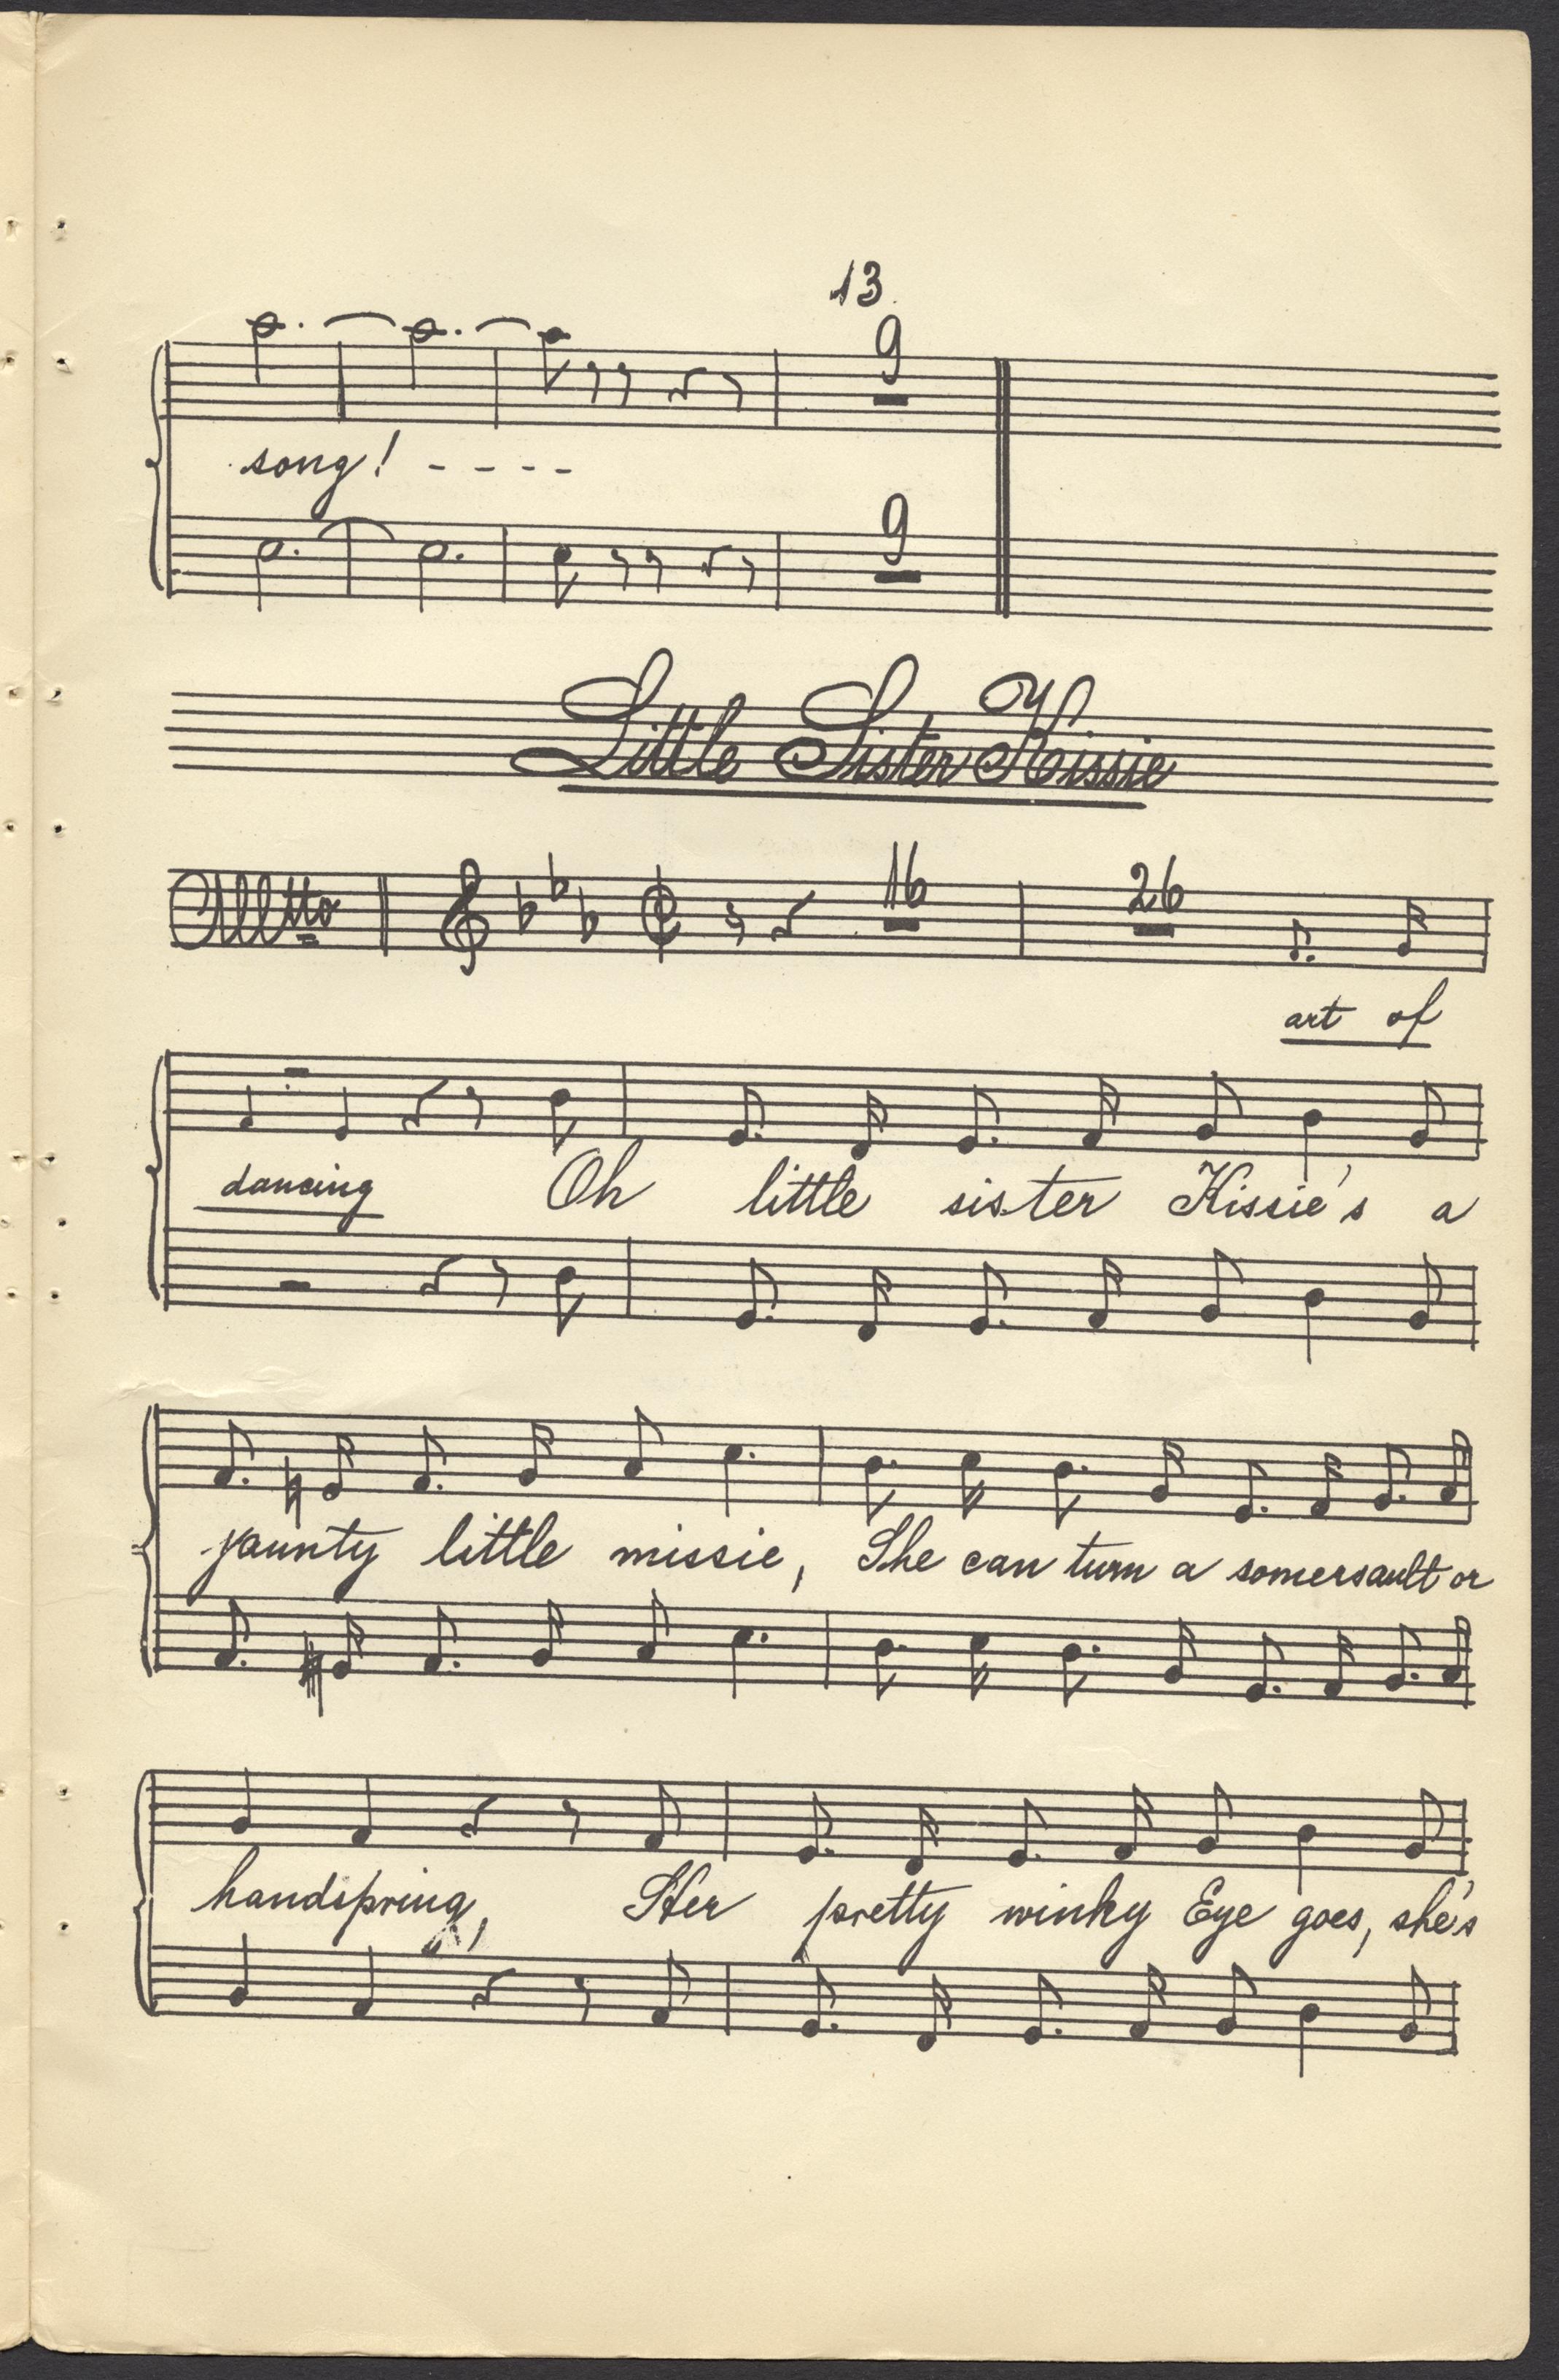 13.
9
song! - - - -
9
Little Sister Kissie
Alletto
16
26
art of
dancing Oh little sister Kissie's a
jaunty little missie, She can turn a somersault or
handspring, Her pretty winky Eye goes, she's